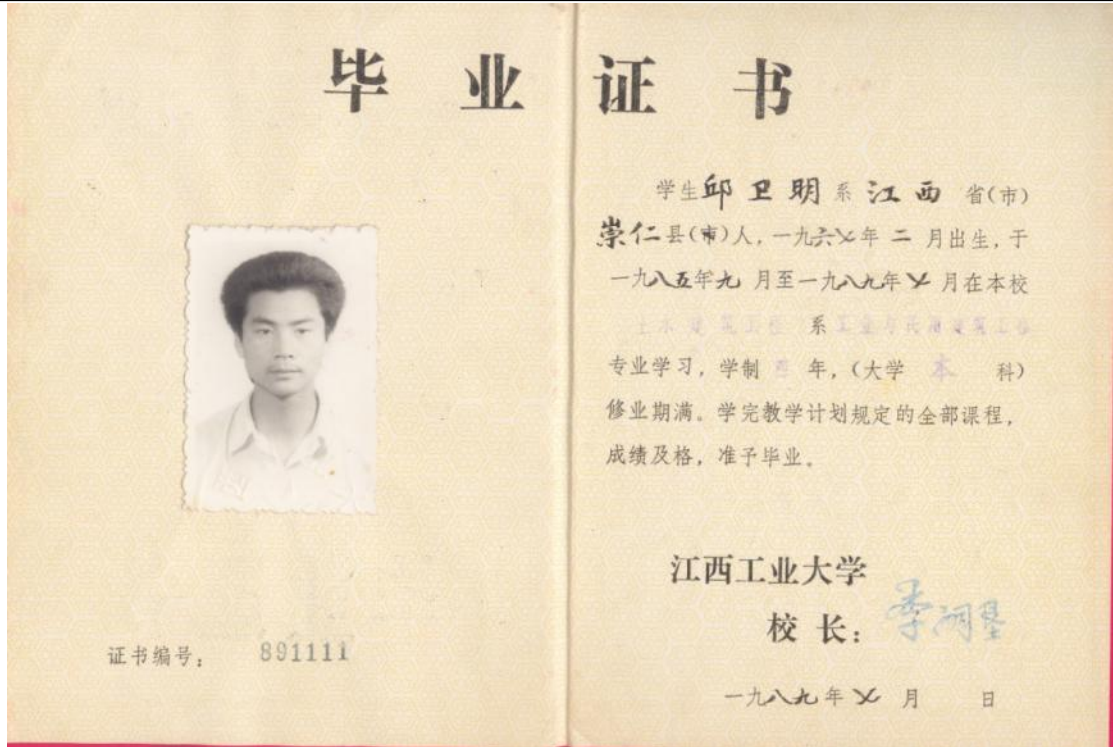 毕业证书
学生邱卫明系江西省(市)
崇仁县(市)人,一九六七年二月出生,于
一九八五年九月至一九八九年七月在本校
土木建筑工程系工业与民用建筑工程
专业学习,学制四年,(大学本科)
修业期满。学完教学计划规定的全部课程,
成绩及格,准予毕业。
江西工业大学
校长:
一九八九年七月 日
证书编号:891111